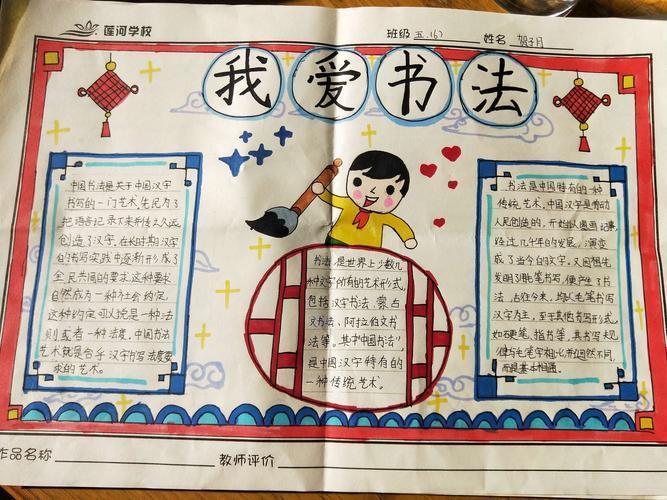 莲河学校
班级 五.(6)
姓名 贺子月
我爱书法
中国书法是关于中国汉字
书写的一门艺术,先民为了
把语言记录下来并传之久远,
创造了汉字,在长时期汉字
的书写实践中逐渐形成了
全民共同的要求,这种要求
自然成为一种社会约定,
这种约定可以说是一种法
则或者一种法度,中国书法
艺术就是合乎汉字书写法度要
求的艺术。
书法是世界上少数几
种文字所有的艺术形式,
包括汉字书法、蒙古
文书法、阿拉伯文书
法等。其中"中国书法",
是中国汉字特有的
一种传统艺术。
书法是中国特有的一种
传统艺术,中国汉字是劳动
人民创造的,开始以图画记事,
经过几千年的发展,演变
成了当今的文字,又因祖先
发明了用毛笔书写,便产生了书
法,古往今来,均以毛笔书写
汉字为主,至于其他书写形式,
如硬笔、指书等,其书写规
律与毛笔字相比并非迥然不同,
而是基本相通。
作品名称
教师评价